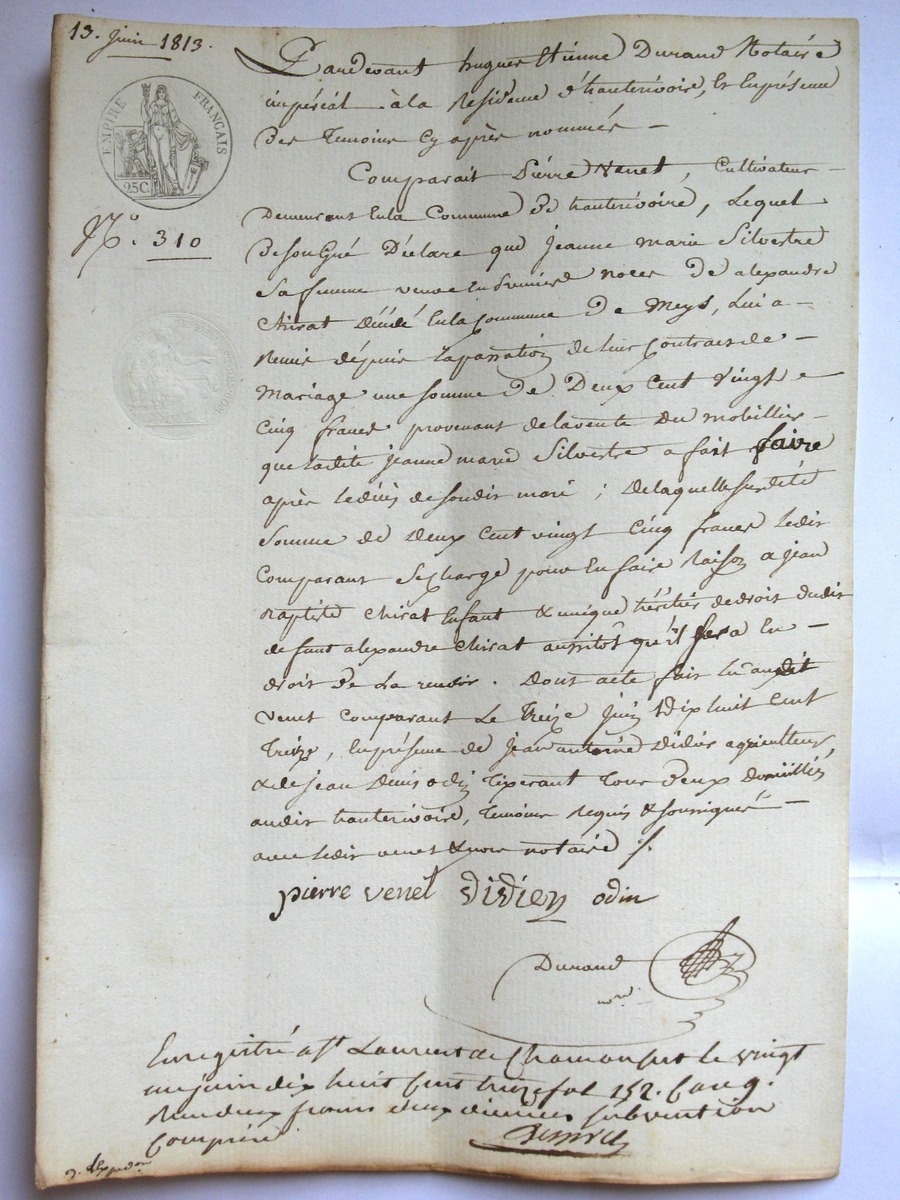 13. Juin 1813.
EMPIRE FRANÇAIS
25C.
N.º 310
Pardevant hugues Etienne Durand Notaire
impérial à la Residence d'hauterivoire, Et Enprésence
des Temoins Cy après nommés —
Comparait Pierre Venet, Cultivateur —
Demeurant Enla Commune de hauterivoire, Lequel
deson Gré Déclare que Jeanne marie Silvestre
Sa femme veuve En Premiere noces de alexandre
Chirat décédé Enla Commune de Meys, Lui a —
Remis depuis lapassation de leur Contract de —
Mariage une somme de Deux Cent vingt
Cinq francs provenant delavente du mobillier —
que ladite jeanne marie Silvestre a fait faire
après ledécès desondit mari ; delaquelle susdité
Somme de deux Cent vingt Cinq francs ledit
Comparant Secharge pour En faire Raison a jean
Baptiste Chirat Enfant & unique héritier de droit dudit
defunt alexandre Chirat aussitôt qu'il sera En —
droit de La recevoir. Dont acte fait Lu audit
Venet Comparant Le Treize juin dix huit Cent
Treize, Enprésence de jean antoine didier agriculteur
& de jean denis odin Tixerant Tous deux domicilliés
audit hauterivoire, Temoins Requis & soussignés —
avec ledit venet & nous notaire ./.
pierre venet didier odin
Durand
nore.
Enregistré a St Laurent de Chamousset le vingt
un juin dix huit Cent treize fol 152. Case 9.
Reçu deux francs deux dixiemes subvention
Comprise.